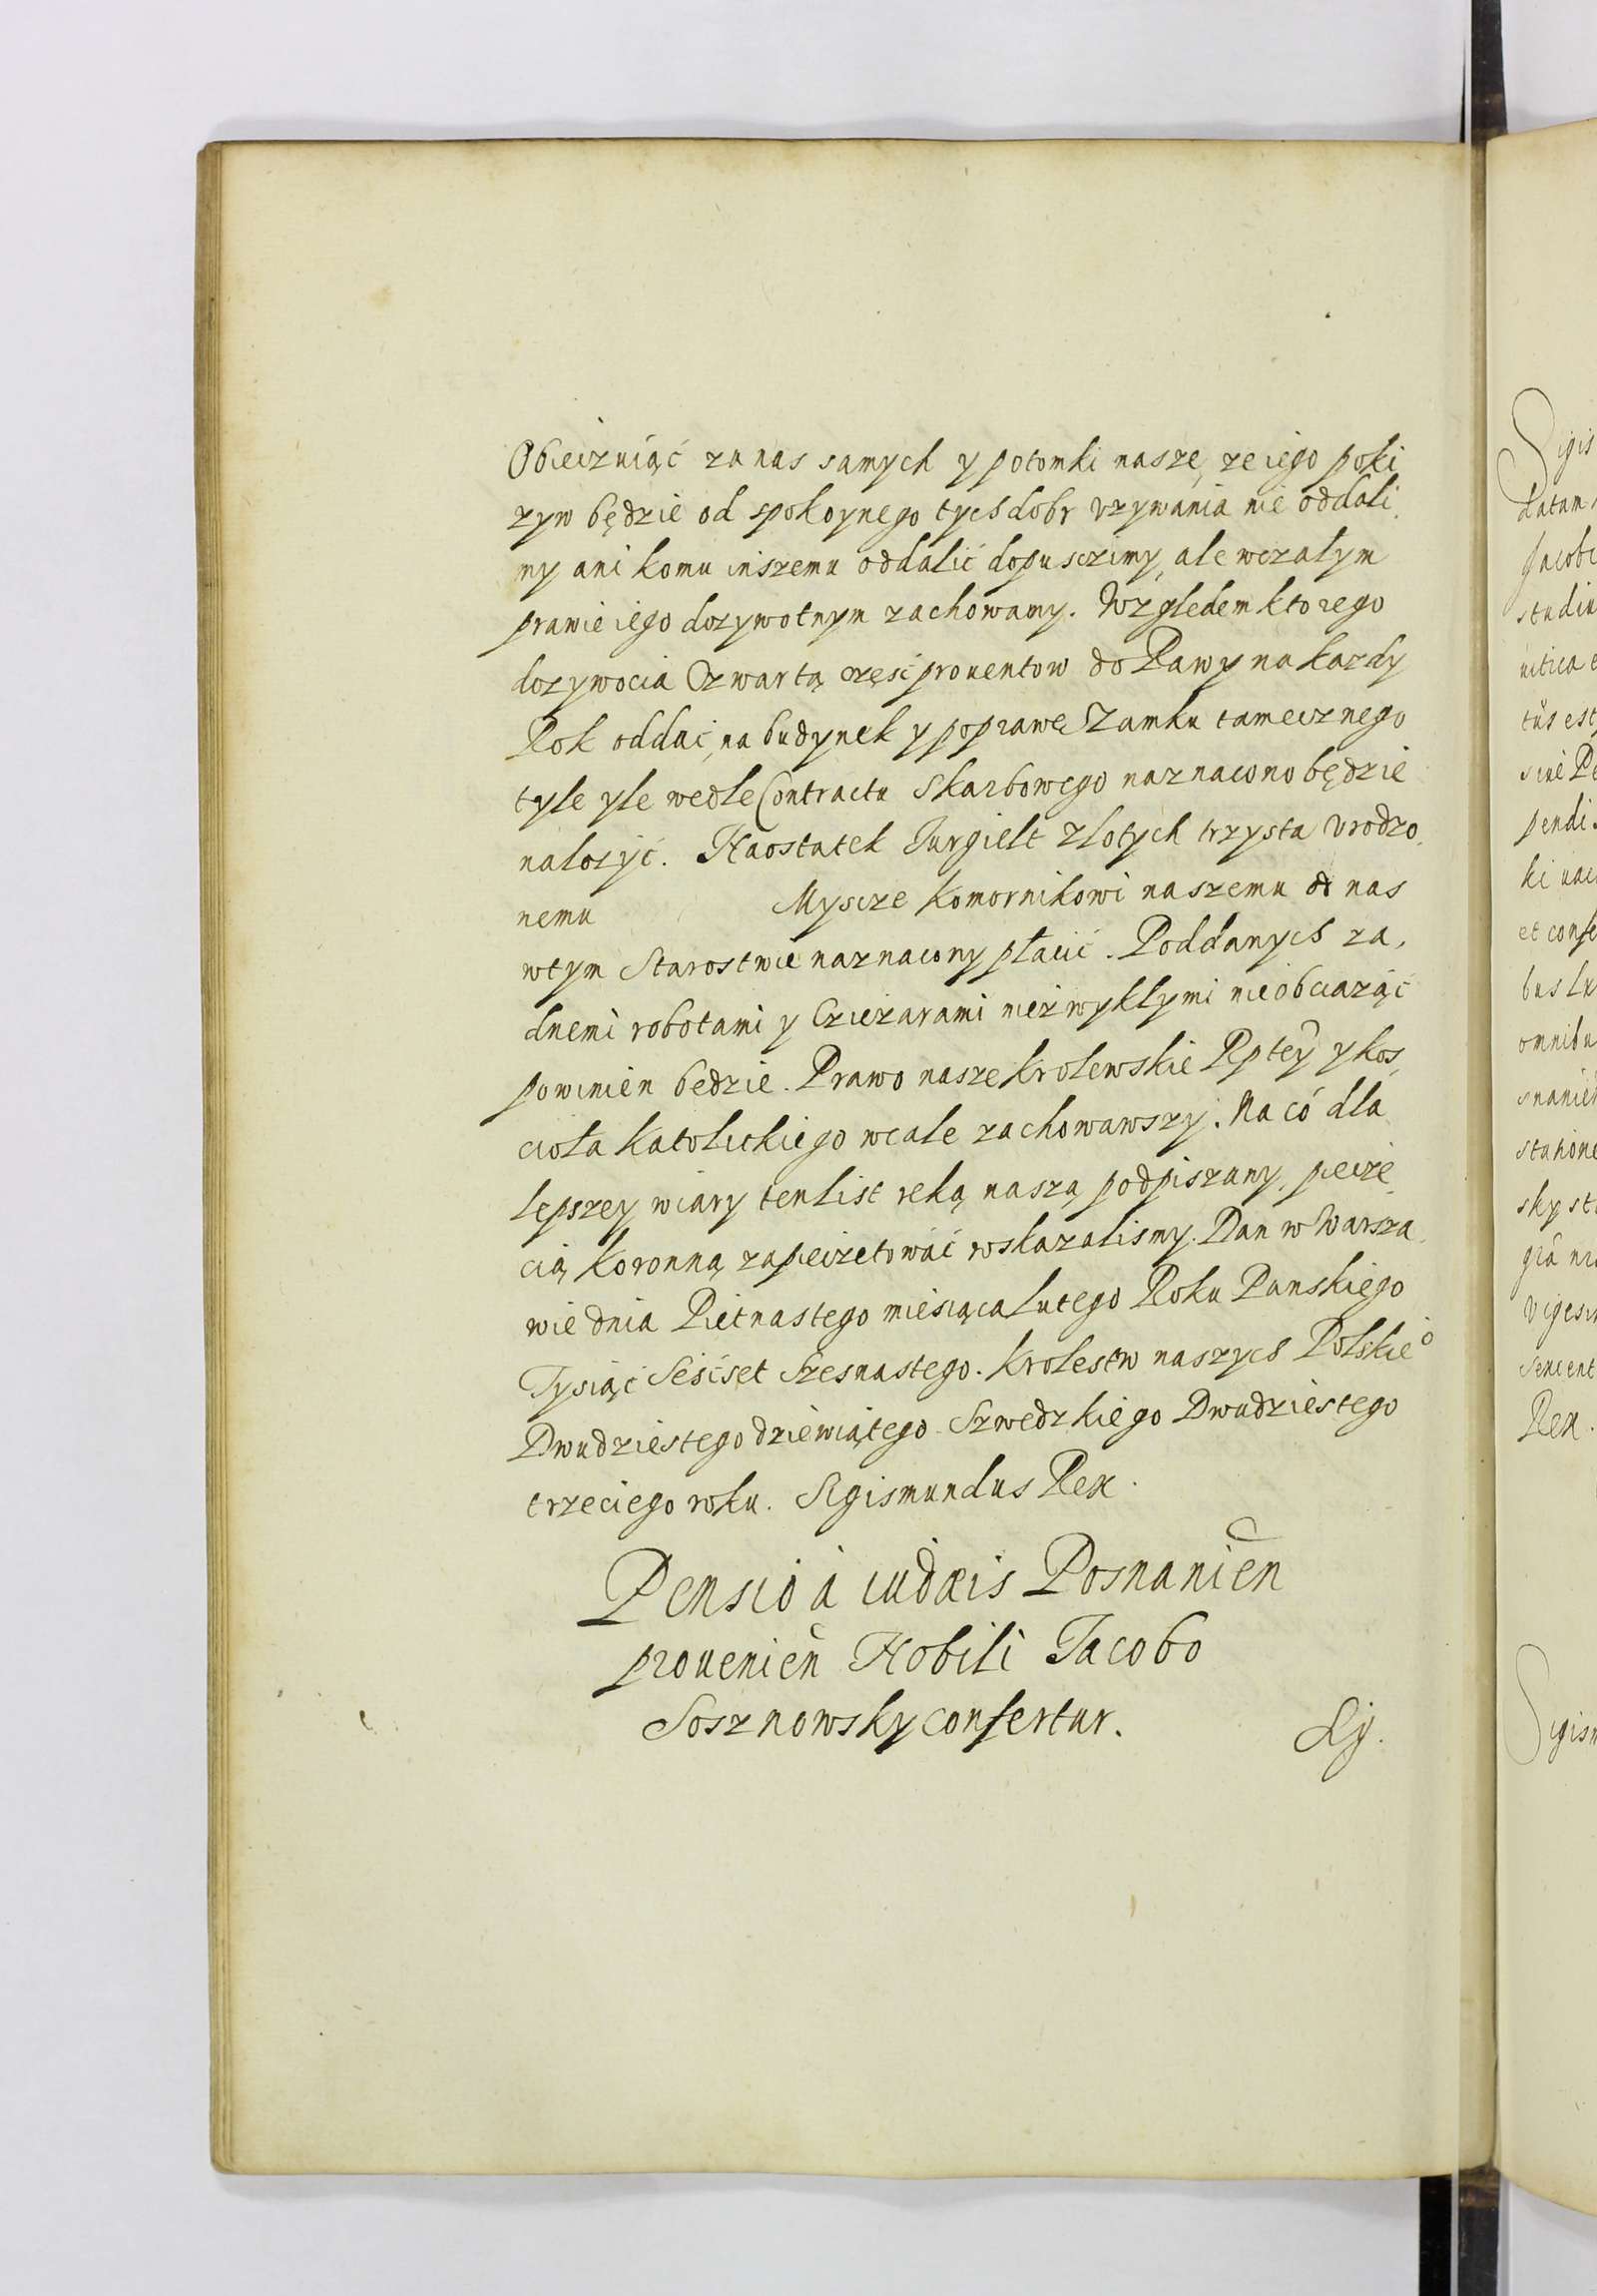 Obiecziuiąć za nas samych y potomki nasze, ze iego poki
zyw będzie od spokoynego tych dobr vzywania nie oddali
my ani komu inszemu oddalić dopuscimy, ale wczałym
prawie iego dozywotnym zachowamy. Wzgledem ktorego
dozywocia Czwartą częsc prouentow do Rawy na kazdy
Rok oddać, na budynek y poprawę Zamku tamecznego
tyle yle wedle Contractu Skarbowego naznacono będzie
nalozyć. Naostatek Jurgielt zlotych trzysta vrodzo
nemu Myscze komornikowi naszemu od nas
wtym Starostwie naznacony płacić. Poddanych za,
dnemi robotami y Cziezarami niezwykłymi nie obciaząć
powinien bedzie. Prawo nasze krolewskie Rptey y kos,
ciola katolickiego wcale zachowawszy. Na có dla
lepszey wiary ten list reką naszą podpiszany, piecze
cią koronną zapieczetowáć roskazalismy. Dan w Warsza
wie dnia Pietnastego miesiąca lutego Roku Panskiego
Tysiąc Seśćset Szesnastego. Krolestw naszych Polskieo
Dwudziestego dziewiątego Szwedzkiego Dwudziestego
trzeciego roku. Sigismundus Rex.
Pensio à iudæis Posnanien
prouenien Nobili Jacobo
Sosznowsky confertur.
Sigis
datam
Jacobo
studiu
nitica e
tus est
siue Pe
pendi
ki uac
et confe
bus lx
omnibu
snanien
statione
sky st
gia nr
Vigesi
sexcent
Rex.
Sigism